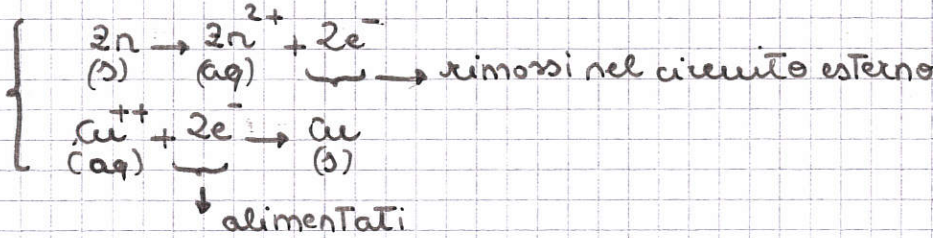 Zn → Zn²⁺ + 2e⁻ → rimossi nel circuito esterno
(s) (aq)
Cu⁺⁺ + 2e⁻ → Cu
(aq) (s)
alimentati